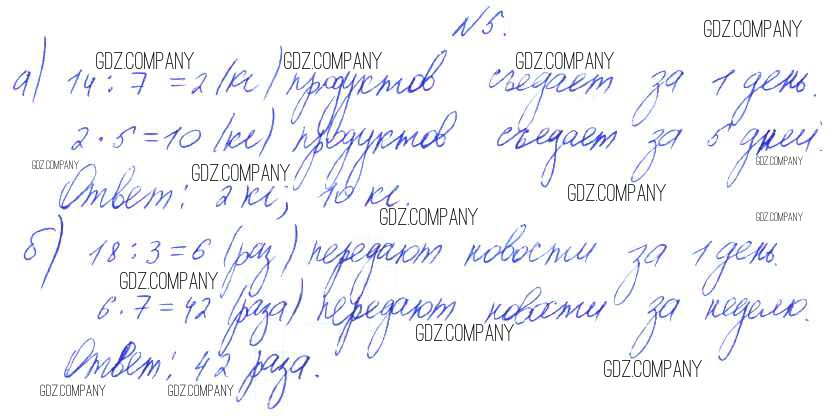 N 5.
GDZ.COMPANY
GDZ.COMPANY GDZ.COMPANY GDZ.COMPANY
а) 14 : 7 = 2 (кг) продуктов съедает за 1 день.
2 · 5 = 10 (кг) продуктов съедает за 5 дней.
GDZ.COMPANY GDZ.COMPANY GDZ.COMPANY
Ответ: 2 кг; 10 кг.
GDZ.COMPANY
GDZ.COMPANY GDZ.COMPANY
б) 18 : 3 = 6 (раз) передают новости за 1 день.
GDZ.COMPANY
6 · 7 = 42 (раза) передают новости за неделю.
GDZ.COMPANY
Ответ: 42 раза.
GDZ.COMPANY
GDZ.COMPANY GDZ.COMPANY